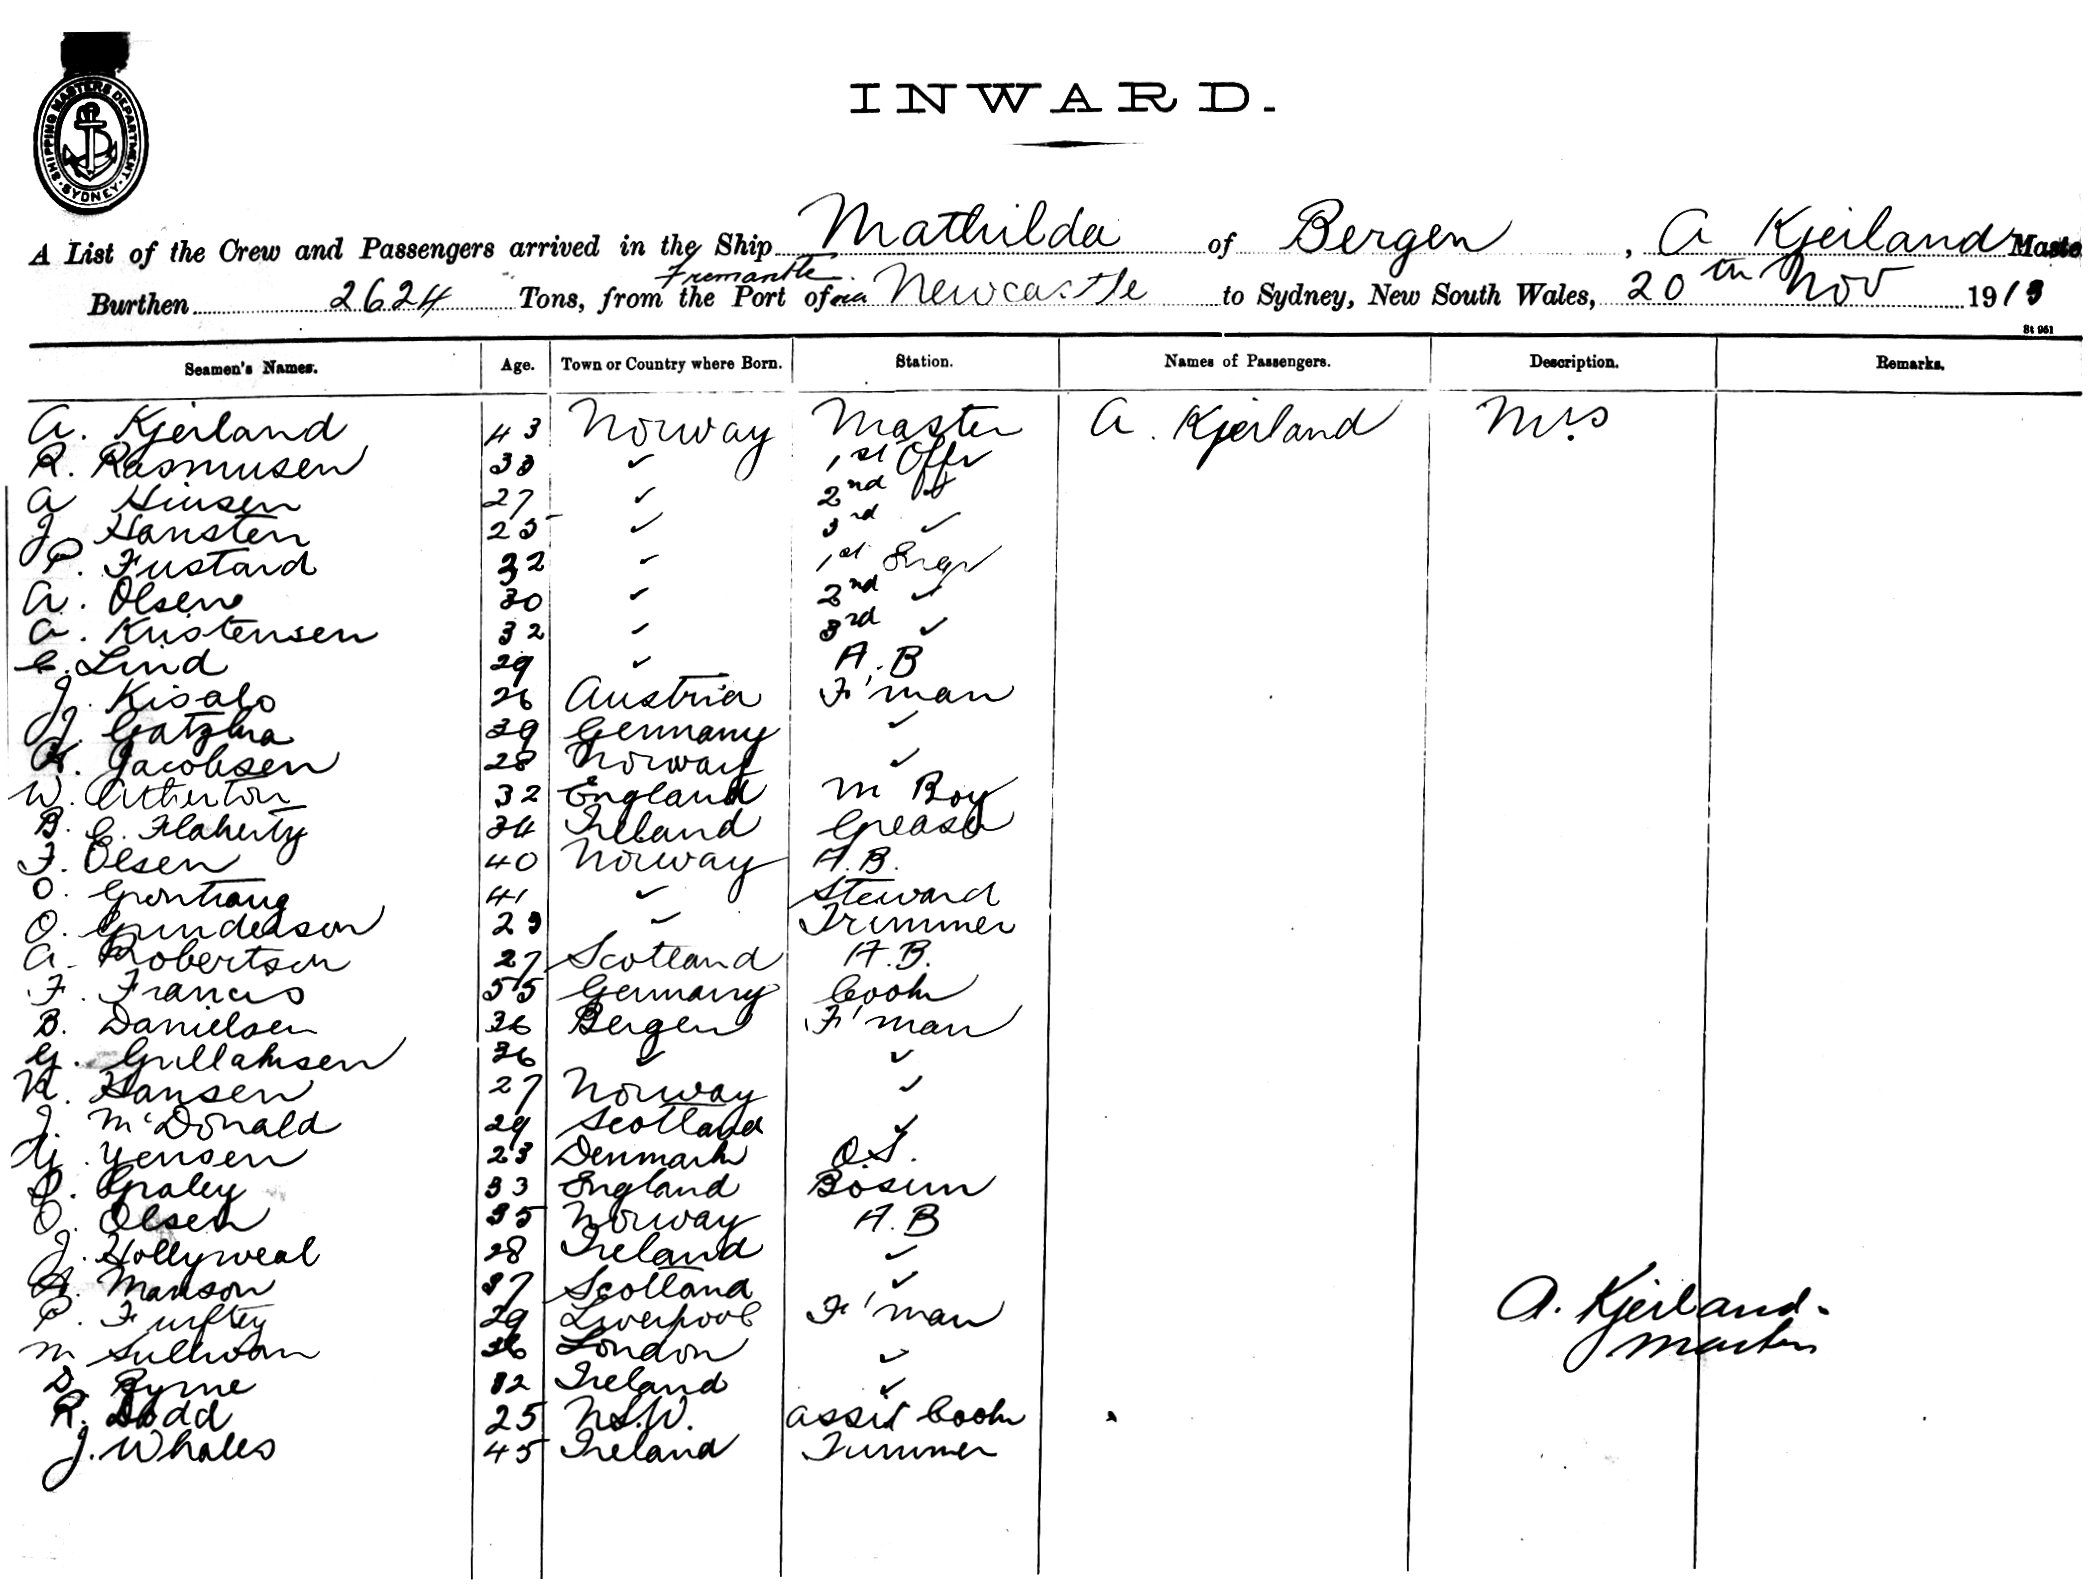 SHIPPING MASTERS DEPARTMENT · SYDNEY ·
INWARD.
A List of the Crew and Passengers arrived in the Ship Mathilda of Bergen, A Kjerland Maste
Fremantle
Burthen 2624 Tons, from the Port of via Newcastle to Sydney, New South Wales, 20th Nov 1913
St 951
Seamen's Names. Age. Town or Country where Born. Station. Names of Passengers. Description. Remarks.
A. Kjerland 43 Norway Master A. Kjerland Mrs
R. Rasmusen 33 ✓ 1st Offr
A 27 ✓ 2nd Off
J Hansten 25 ✓ 3rd ✓
P. Fustard 32 ✓ 1st Engr
A. Olsen 30 ✓ 2nd ✓
A. Kristensen 32 ✓ 3rd ✓
C. Lind 29 ✓ A.B
J. Kisalo 26 Austria F'man
J. 39 Germany ✓
K. Jacobsen 28 Norway ✓
W. Atherton 32 England M Boy
B. C. Flaherty 34 Ireland Greaser
F. Olsen 40 Norway A.B.
O. 41 ✓ Steward
O. Gunderson 23 ✓ Trimmer
A. Robertson 27 Scotland A.B.
F. Francis 55 Germany Cook
B. Danielsen 36 Bergen F'man
G. Gullaksen 36 ✓ ✓
N. Hansen 27 Norway ✓
J. McDonald 29 Scotland ✓
Yensen 23 Denmark O.S.
Graley 33 England Bosun
O. Olsen 35 Norway A.B
J. Hollyweal 28 Ireland ✓
A. Manson 37 Scotland ✓
P. 29 Liverpool F'man
M Sullivan 36 London ✓
D. Byrne 32 Ireland ✓
R. Dodd 25 N.S.W. Assit Cook
J. Whales 45 Ireland Trimmer
A. Kjerland.
Master